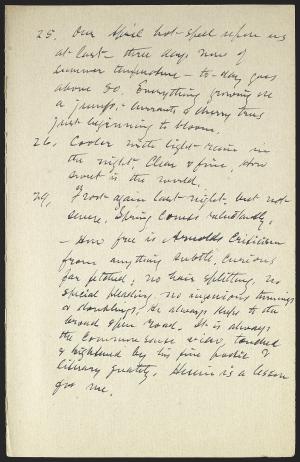 25. Our April hot-spell upon us
at-last- three days now of
summer temperature - to-day goes
above 80. Everything growing on
a jump. - currants & cherry trees
just beginning to bloom.
26. Cooler with light-rain in
the night. Clear & fine. How
sweet is the world.
29, Frost again last night, but not
severe. Spring comes reluctantly.
- How free is Arnolds Criticism
from anything subtle, curious
far fetched; no hair splitting, no
special pleading, no ingenious turnings
or doublings, he always keeps to the
broad open road. It is always
the common sense view, touched
& heightened by his fine poetic &
literary quality. Herein is a lesson
for me.